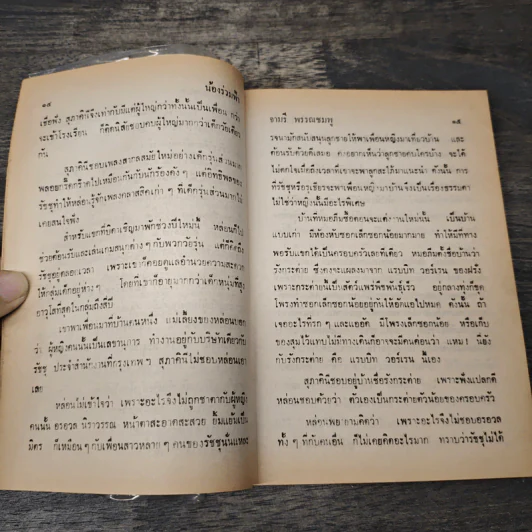 ๑๔ น้องร่วมฟ้า
เชื่อฟัง สุภาคินีจึงเท่ากับมีแต่ผู้ใหญ่กว่าทั้งนั้นเป็นเพื่อน กว่า
จะเข้าโรงเรียน ก็ติดนิสัยชอบคบผู้ใหญ่มากกว่าเด็กวัยเดียว
กัน
สุภาคินีชอบเพลงสากลสมัยใหม่อย่างเด็กรุ่นส่วนมาก
พลอยกรี๊ดกร๊าดไปเหมือนกันกับนักร้องดัง ๆ แต่อิทธิพลของ
รัชชุทำให้หล่อนรู้จักเพลงคลาสสิคเก่า ๆ ที่เด็กรุ่นส่วนมากไม่
เคยสนใจฟัง
สำหรับแขกที่บิดาเชิญมาพักช่วงปีใหม่นี้ หล่อนก็ไป
ช่วยต้อนรับและเล่นเกมสนุกต่าง ๆ กับพวกวัยรุ่น แต่ก็คิดถึง
รัชชุอยู่ตลอดเวลา เพราะเขาก็คอยดูแลอำนวยความสะดวก
ให้กลุ่มเด็กอยู่ห่าง ๆ โดยที่เขาก็อายุมากกว่าเด็กหนุ่มที่สูง
อาวุโสที่สุดในกลุ่มถึงสี่ปี
เขาพาเพื่อนมาที่บ้านคนหนึ่ง แม่เลี้ยงของหล่อนบอก
ว่า ผู้หญิงคนนั้นเป็นเลขานุการ ทำงานอยู่กับบริษัทเดียวกับ
รัชชุ ประจำสำนักงานที่กรุงเทพ ฯ สุภาคินีไม่ชอบหล่อนเอา
เลย
หล่อนไม่เข้าใจว่า เพราะอะไรจึงไม่ถูกชาตากับผู้หญิง
คนนั้น อรอวล นิราวรรณ หน้าตาสะอาดสะสวย ยิ้มแย้มเป็น
มิตร ก็เหมือน ๆ กับเพื่อนสาวหลาย ๆ คนของรัชชุนั่นแหละ
อาบรี พรรณชมพู ๑๕
รจนามักสนับสนุนลูกชายให้พาเพื่อนหญิงมาเที่ยวบ้าน และ
ต้อนรับด้วยดีเสมอ คงอยากเห็นว่าลูกชายคบใครบ้าง จะได้
ไม่ตกใจเมื่อถึงเวลาที่เขาจะพาลูกสะใภ้มาแนะนำ ดังนั้น การ
ที่รัชชุหรือรุเธียรจะพาเพื่อนหญิงมาบ้านจึงเป็นเรื่องธรรมดา
ไม่ใช่ว่าหญิงนั้นมีอะไรพิเศษ
บ้านที่หมอภีมซื้อตอนจะแต่งงานใหม่นั้น เป็นบ้าน
แบบเก่า มีห้องหับซอกเล็กซอกน้อยมากมาย ทำให้มีที่ทาง
พอรับแขกได้เป็นครอบครัวเลยทีเดียว หมอภีมตั้งชื่อบ้านว่า
รังกระต่าย ซึ่งคงจะแผลงมาจาก แรบบิท วอร์เรน ของฝรั่ง
เพราะกระต่ายเป็นสัตว์แพร่พืชพันธุ์เร็ว อยู่กลางทุ่งก็ขุด
โพรงทำซอกเล็กซอกน้อยอยู่กันให้อักแอไปหมด ดังนั้น ถ้า
เจออะไรที่รก ๆ และแออัด มีโพรงเล็กซอกน้อย หรือเก็บ
ของสุมไว้แทบไม่มีทางเดินก็อาจจะมีคนค่อนว่า แหม ! น้อง
กับรังกระต่าย คือ แรบบิท วอร์เรน นี่เอง
สุภาคินีชอบอยู่บ้านชื่อรังกระต่าย เพราะฟังแปลกดี
หล่อนชอบด้วยว่า ตัวเองเป็นกระต่ายตัวน้อยของครอบครัว
หล่อนพยายามคิดว่า เพราะอะไรจึงไม่ชอบอรอวล
ทั้ง ๆ ที่กับคนอื่น ก็ไม่เคยคิดอะไรมาก ทราบว่ารัชชุไม่ได้